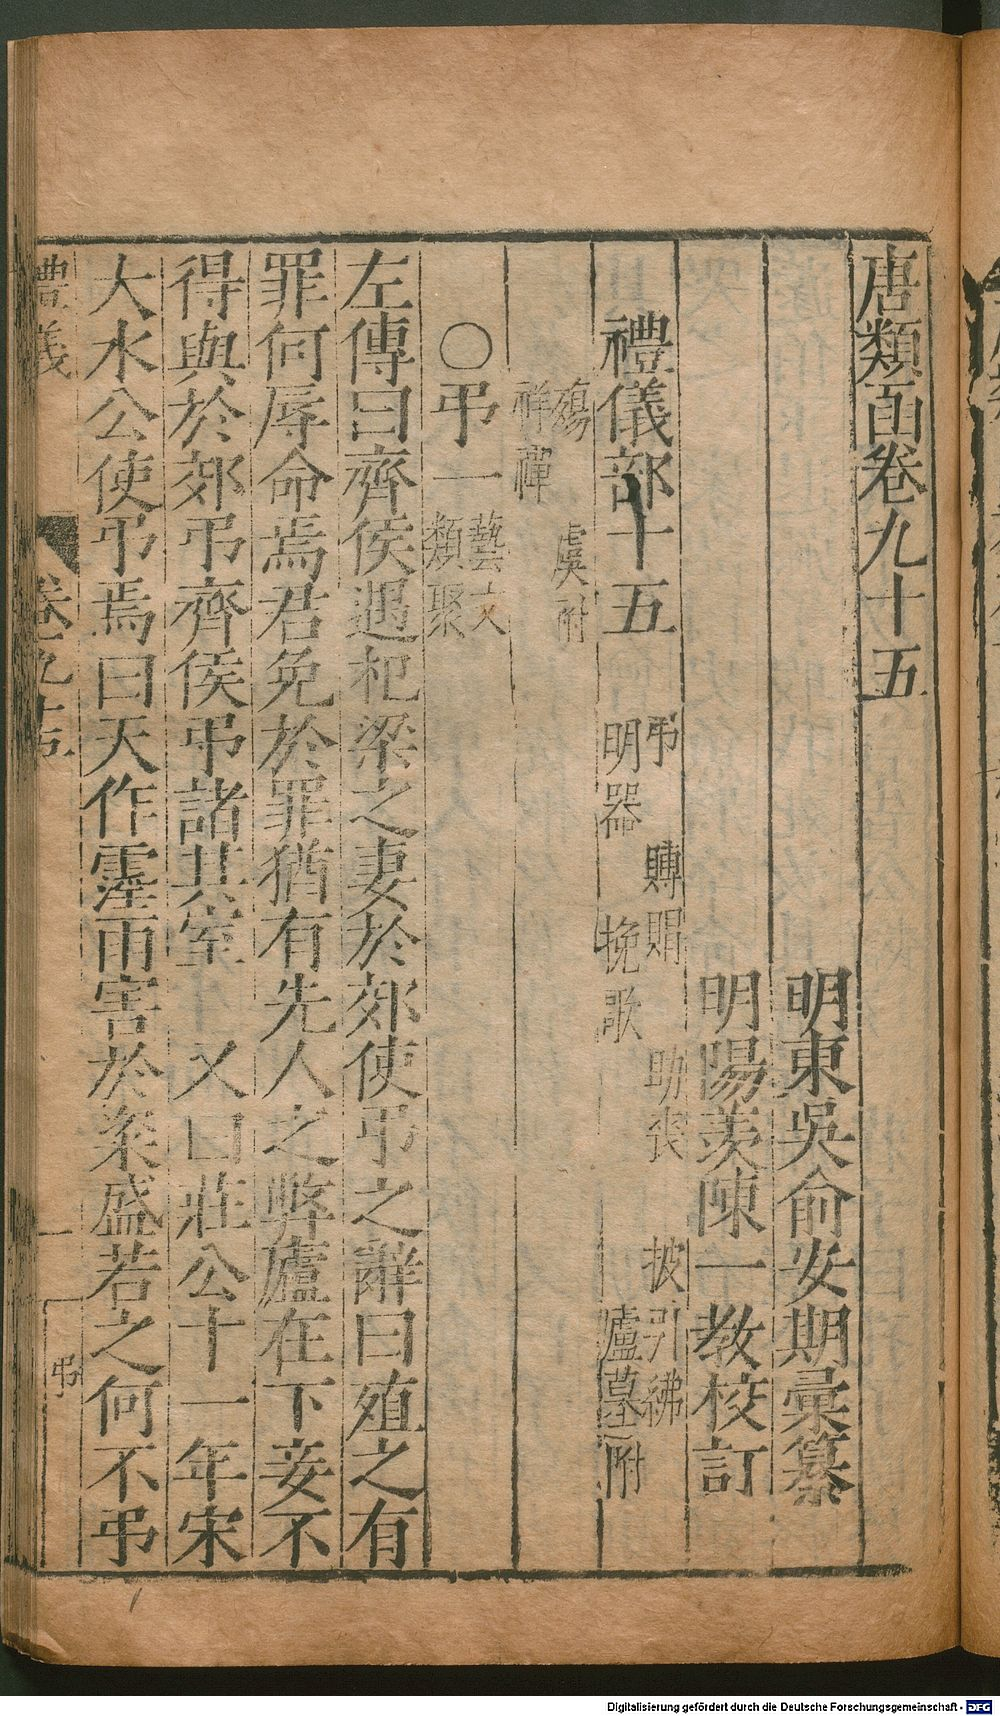 唐類函卷九十五
明東吳俞安期彙纂
明陽羨陳一教校訂
禮儀部十五
弔　賻賵　助喪　披引紼
明器　挽歌　廬墓附
殤　虞附
祥禫
○弔一
藝文
類聚
左傳曰齊侯遇杞梁之妻於郊使弔之辭曰殖之有
罪何辱命焉君免於罪猶有先人之弊廬在下妾不
得與於郊弔齊侯弔諸其室　又曰莊公十一年宋
大水公使弔焉曰天作霪雨害於粢盛若之何不弔
禮儀
卷九十五
一
弔
Digitalisierung gefördert durch die Deutsche Forschungsgemeinschaft - DFG